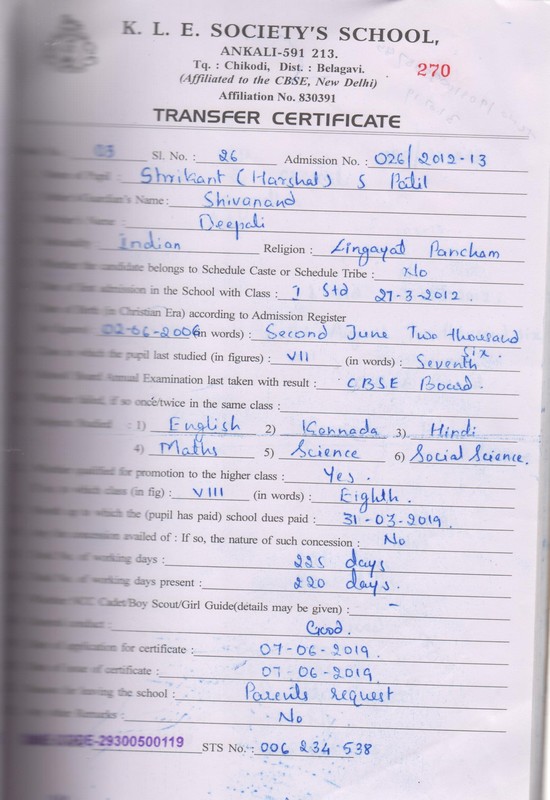 K. L. E. SOCIETY'S SCHOOL,
ANKALI-591 213.
Tq. : Chikodi, Dist. : Belagavi.
(Affiliated to the CBSE, New Delhi)
270
Affiliation No. 830391
TRANSFER CERTIFICATE
03 Sl. No. : 26 Admission No. : 026/2012-13
Shrikant (Harshal) S Patil
Name : Shivanand
Name : Deepali
Indian Religion : Lingayat Pancham
candidate belongs to Schedule Caste or Schedule Tribe : No
first admission in the School with Class : I Std 27-3-2012.
Birth (in Christian Era) according to Admission Register
02-06-2006 (in words) : Second June Two thousand
Six.
which the pupil last studied (in figures) : VII (in words) : Seventh
Annual Examination last taken with result : CBSE Board.
if so once/twice in the same class :
1) English 2) Kannada 3) Hindi
4) Maths 5) Science 6) Social Science.
qualified for promotion to the higher class : Yes.
which class (in fig) : VIII (in words) : Eighth.
to which the (pupil has paid) school dues paid : 31-03-2019.
concession availed of : If so, the nature of such concession : No
of working days : 225 days
No. of working days present : 220 days.
NCC Cadet/Boy Scout/Girl Guide(details may be given) : -
Good.
application for certificate : 07-06-2019.
of certificate : 07-06-2019.
leaving the school : Parents request
Remarks : No
CODE-29300500119 STS No. : 006 234 538